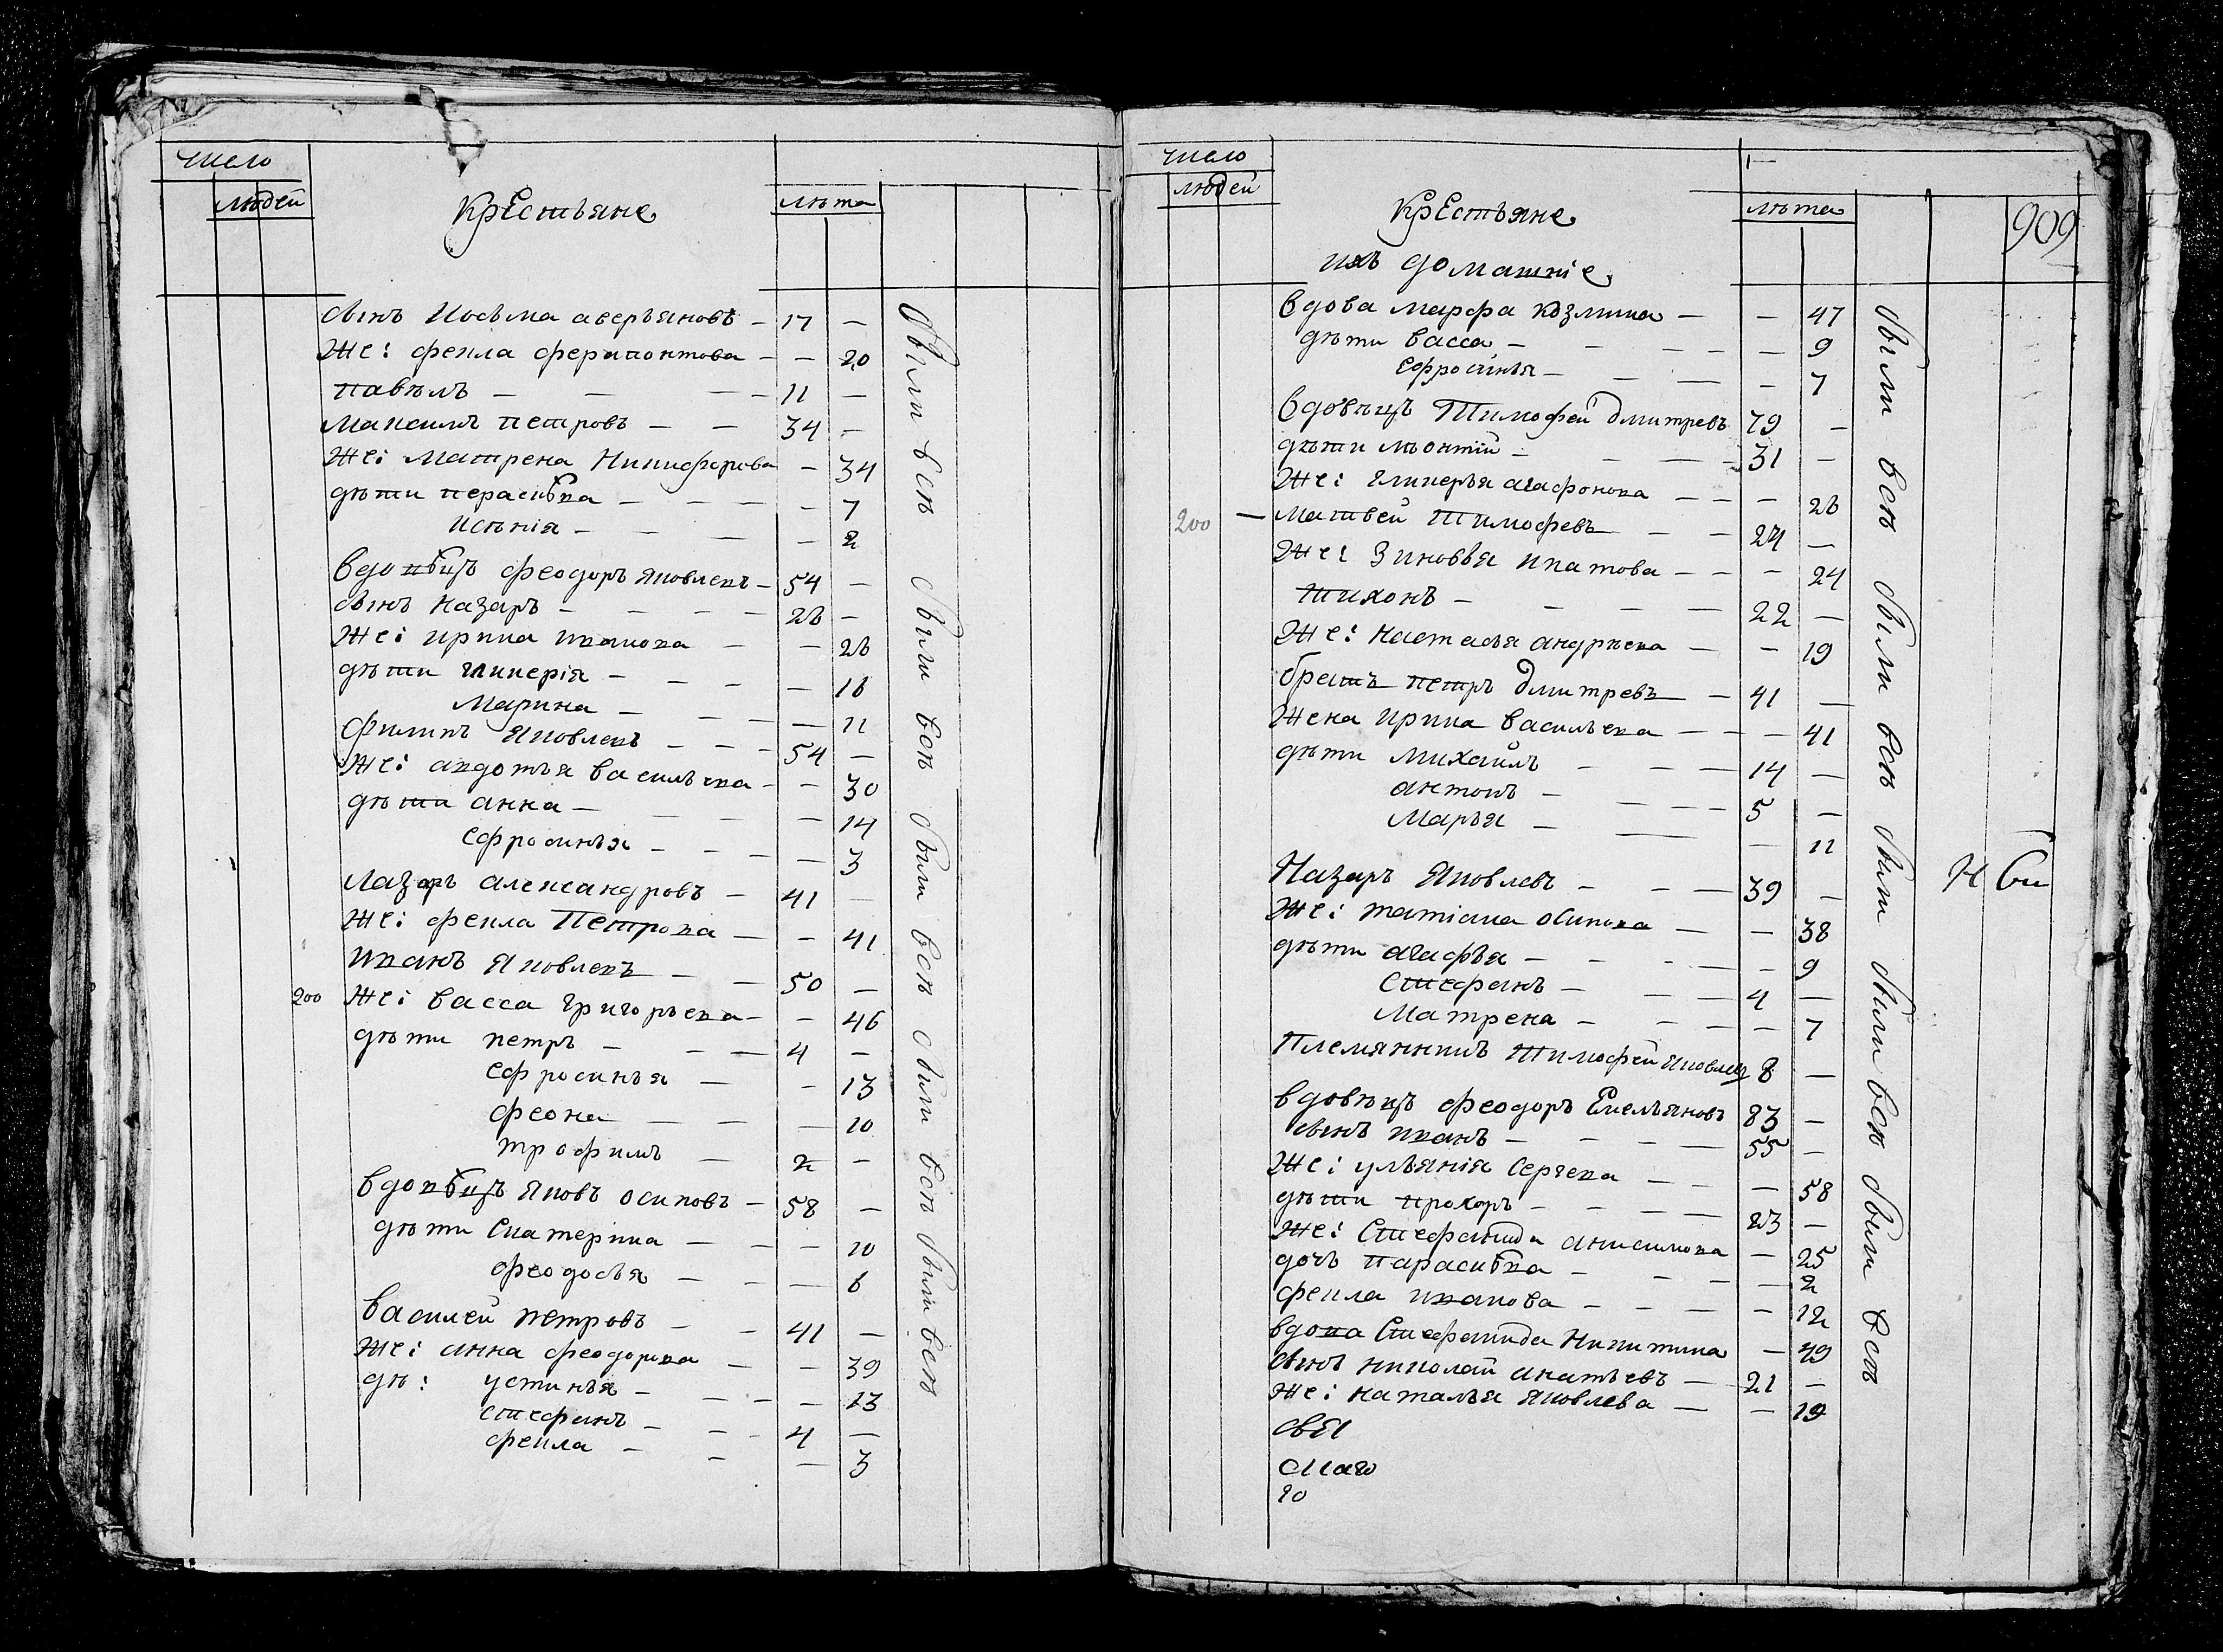 число
людей
Крестьяне
лѣта
сынъ Косьма аверьяновъ - 17 -
Же: фекла ферапонтова - - 20
павѣлъ - - - 11 -
Максимъ петровъ - - 34 -
Же: Матрена Никифорова - 34
дѣти парасковa - - - 7
Ксѣнія - - - - 2
вдовецъ феодоръ яковлевъ - 54 -
сынъ Назаръ - - - - 28 -
Же: ирина иванова - - 28
дѣти гликерія - - - - 18
Марина - - - - 11
филипъ яковлевъ - - - 54 -
Же: авдотья васильева - - 30
дѣти анна - - - - 14
ефросинья - - - - 3
Лазарь александровъ - 41 -
Же: фекла Петрова - - 41
иванъ яковлевъ - - 50 -
200 Же: васса григорьева - - 46
дѣти петръ - - - 4 -
ефросинья - - 13
феона - - - 10
трофимъ - 2 -
вдовецъ яковъ осиповъ - 58 -
дѣти Екатерина - - - 10
феодосья - - - 6
василей петровъ - - 41 -
Же: анна феодорова - - 39
дѣ: устинья - - - - 13
стефанъ - - - 4 -
фекла - - - 3
были всѣ были всѣ были всѣ были всѣ были всѣ
число
людей
Крестьяне
лѣта
909
ихъ домашніе
вдова марфа козмина - - 47
дѣти васса - - - - - 9
ефросинья - - - - 7
вдовецъ Тимофей дмитревъ 79 -
дѣти лѣонтій - - - - 31 -
Же: гликерья агафонова - - - 28
200 - матвей Тимофевъ - - 24 -
Же: Зиновья ипатова - - - 24
Тихонъ - - - - 22 -
Же: настасья андрѣева - - 19
братъ петръ дмитревъ - 41 -
Жена ирина васильева - - - 41
дѣти Михайлъ - - - 14 -
антонъ - - - - 5 -
Марья - - - 11
Назаръ яковлевъ - - - 39 -
Же: татіана осипова - - 38
дѣти агафья - - - - - 9
стефанъ - - - 4 -
Матрена - - - - - 7
Племянникъ Тимофей яковлевъ 8 -
вдовецъ феодоръ Емельяновъ 83 -
сынъ иванъ - - - - 55 -
Же: ульянія сергева - - - 58
дѣти прохоръ - - - - 23 -
Же: Стефанида анисимова - 25
дочь парасковa - - - - 2
фекла иванова - - - - 12
вдова Стефанида Никитина - 49
сынъ николай анатьевъ - 21 -
Же: наталья яковлева - - 19
были всѣ были всѣ были были всѣ были всѣ